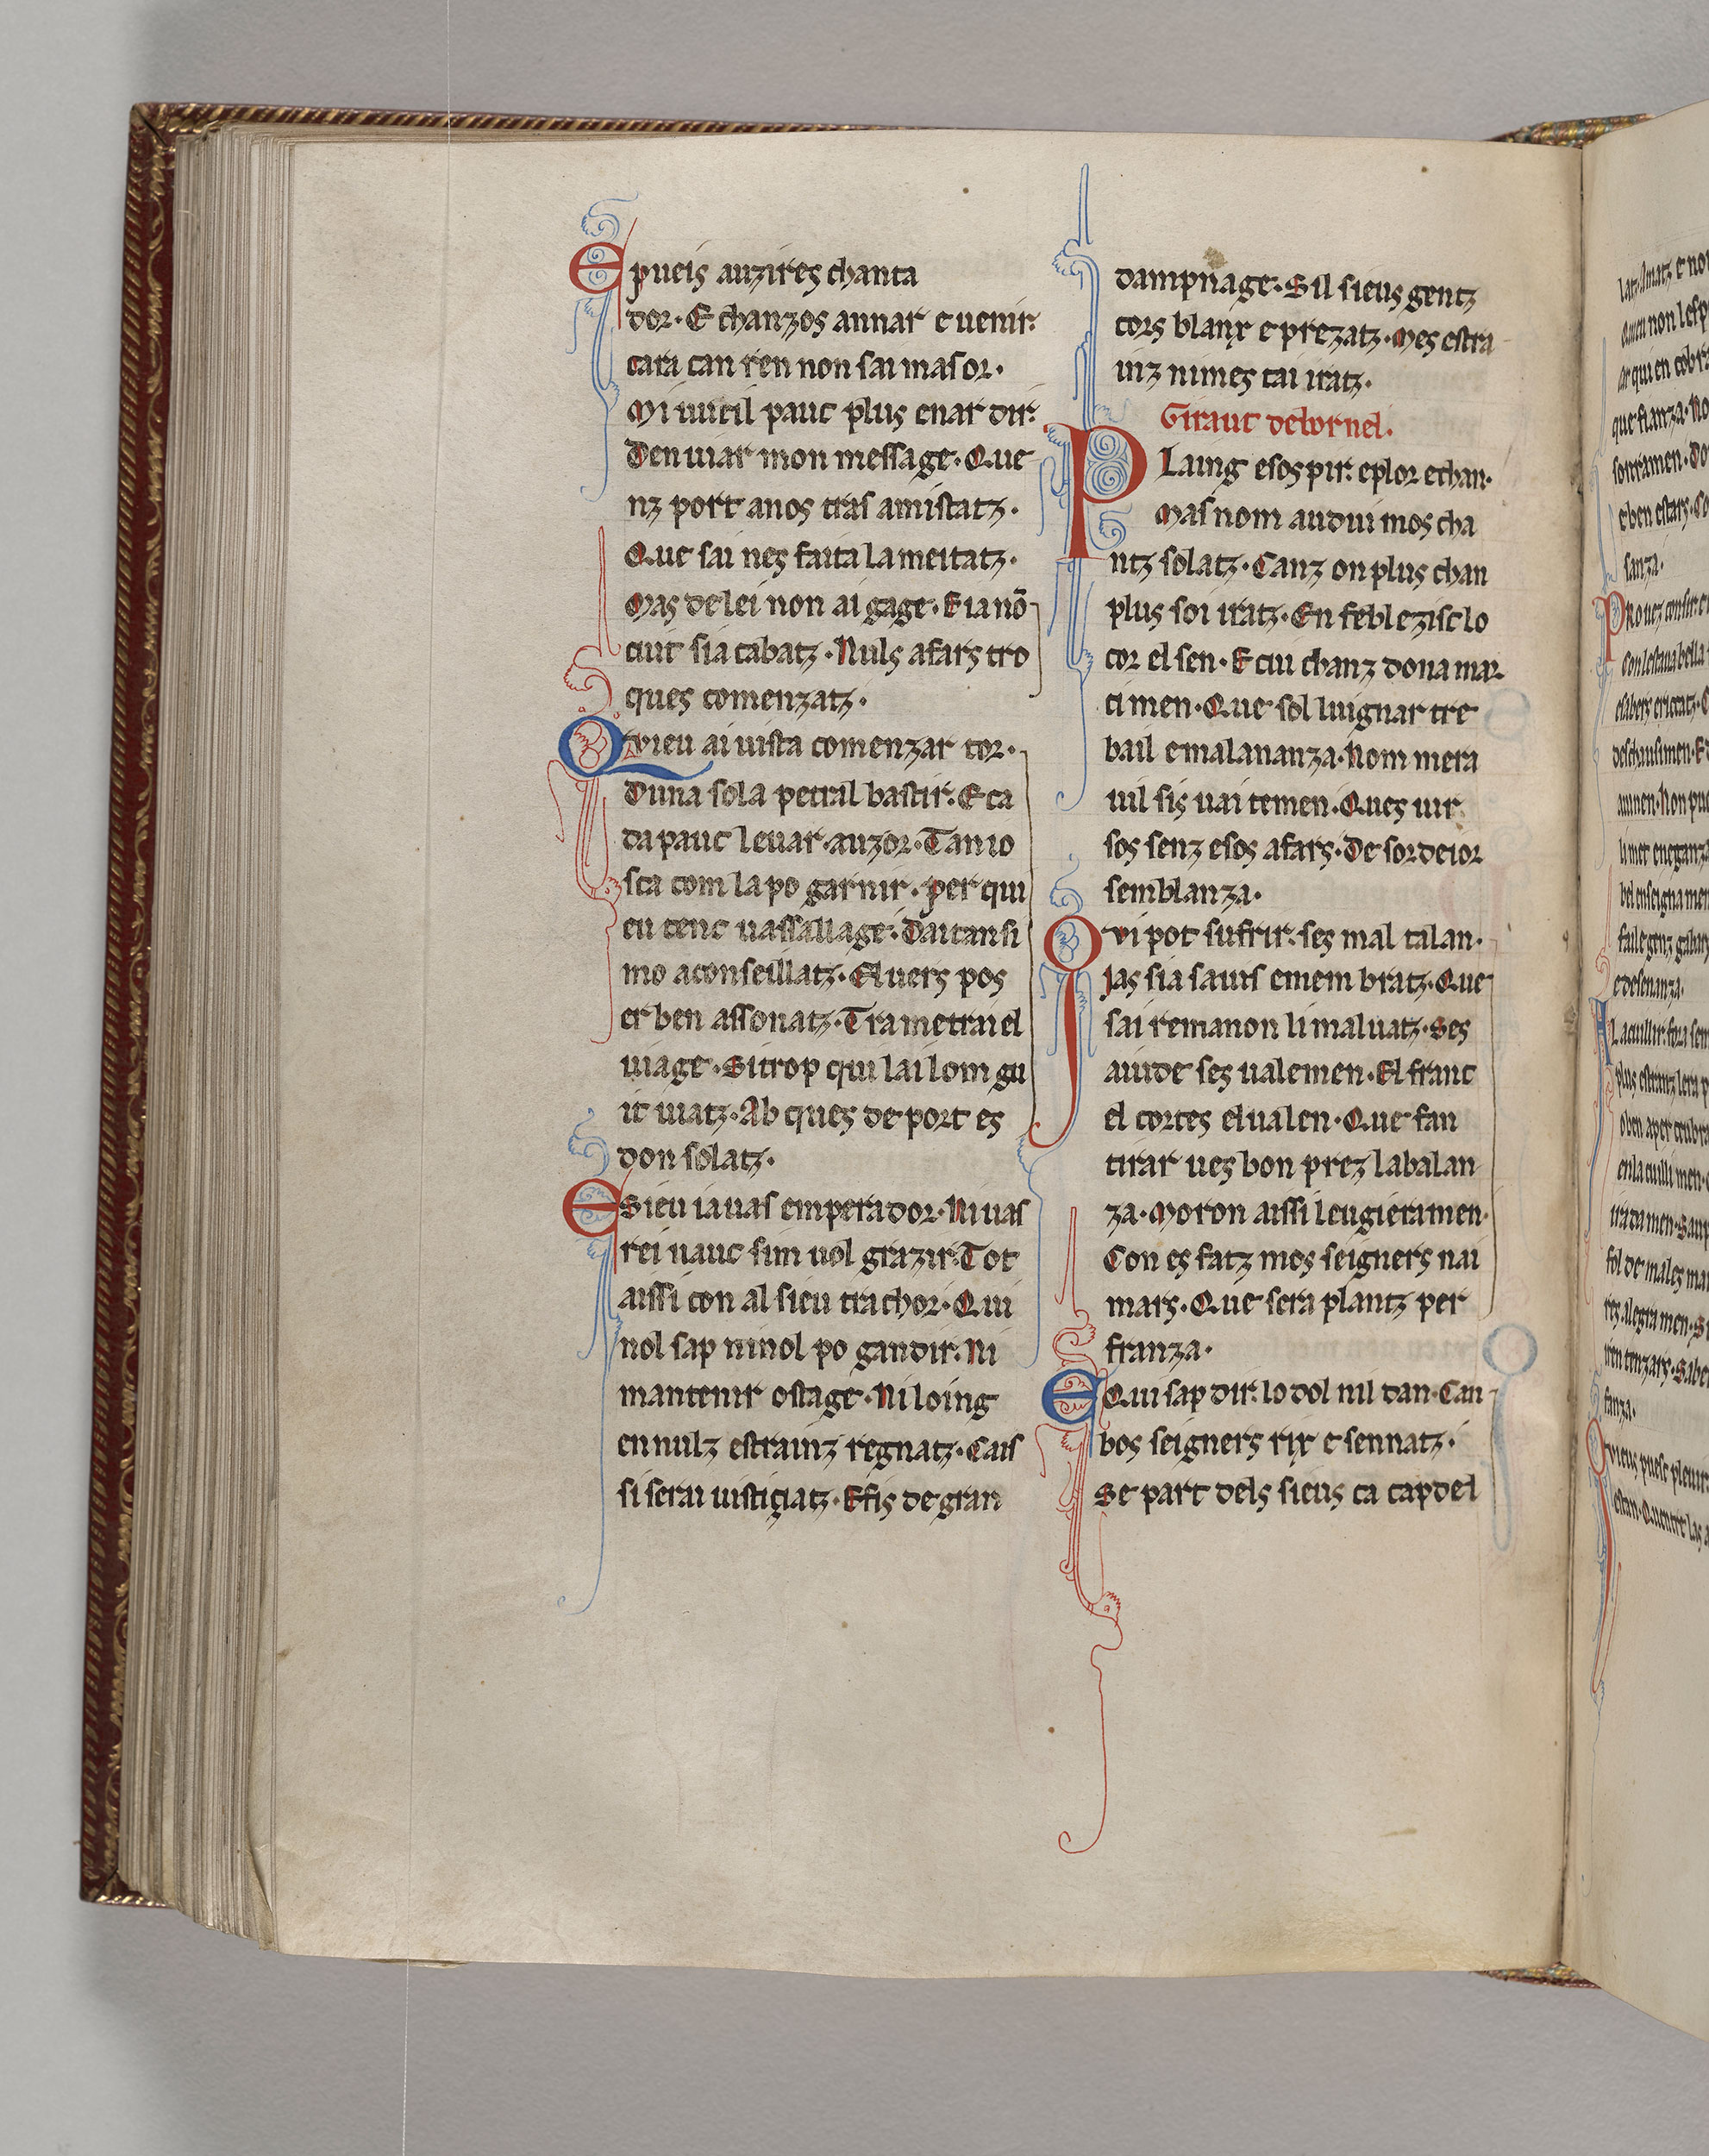 E pueis auzires chanta
dor. E chanzos annar e uenir.
cara can ren non sai ma sor.
Mi uueil pauc plus enar dir.
Denuiar mon message. Que
nz port anos tras amistatz.
Que sai nes faita la meitatz.
Mas de lei non ai gage. Eia nō
cut sia cabatz. Nuls afars tro
ques comenzatz.
Qvieu ai uista comenzar tor.
Duna sola petral bastir. E ca
da pauc leuar. auzor. Tan io
sca com la po garnir. per qui
eu tenc uassallage. Dautan si
mo aconseillatz. El uers pos
er ben assonatz. Trametrai el
uiage. Si trop qui lai lom gu
it uiatz. Ab ques de port es
don solatz.
E sieu iauas emperador. Ni uas
rei uauc sim uol grazir. Tot
aissi con al sieu trachor. Qui
nol sap ni nol po gandir. Ni
mantenir ostage. Ni loing
en nulz estrainz regnatz. Cais
si serai iusticiatz. Efis de gran
dampnage. Sil sieus gentz
cors blanx e prezatz. Mes estra
inz nimes tai iratz.
Giraut debornel.
PLaing esospir. eplor echan.
Mas nom audui mos cha
ntz solatz. Canz on plus chan
plus soi iratz. En feblezisc lo
cor el sen. E ciu chanz dona mar
ti men. Que sol luignar tre
bail emalananza. Nom mera
uil sis uai temen. Ques uir
sos senz esos afars. De sordeior
semblanza.
Qvi pot sufrir. ses mal talan.
Jas sia sauis emem bratz. Que
sai remanon li maluatz. Ses
aiude ses ualemen. El franc
el cortes el ualen. Que fan
tirar ues bon prez labalan
za. Moron aissi leugieramen.
Con es fatz mos seigners nai
mars. Que sera plantz per
franza.
E Qui sap dir. lo dol nil dan. Can
bos seigners rix e sennatz.
Se part dels sieus ca capdel